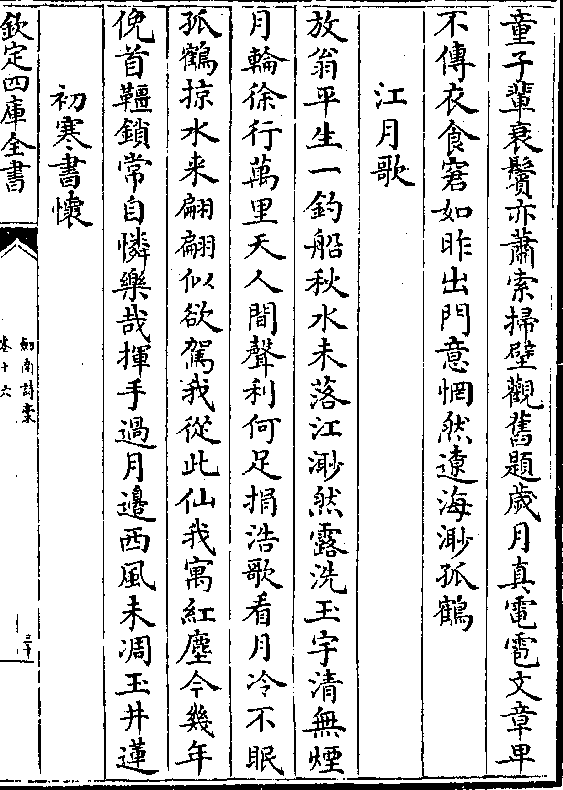 童子輩衰鬢亦蕭索掃壁觀舊題歲月真電雹文章卑
不傳衣食窘如昨出門意惘然遼海渺孤鶴
江月歌
放翁平生一釣船秋水未落江渺然露洗玉宇清無煙
月輪徐行萬里天人間聲利何足捐浩歌看月冷不眠
孤鶴掠水来翩翩似欲駕我從此仙我寓紅塵今幾年
俛首韁鎖常自憐樂哉揮手過月邊西風未凋玉井蓮
初寒書懷
欽定四庫全書
劍南詩稾
卷十六
二十